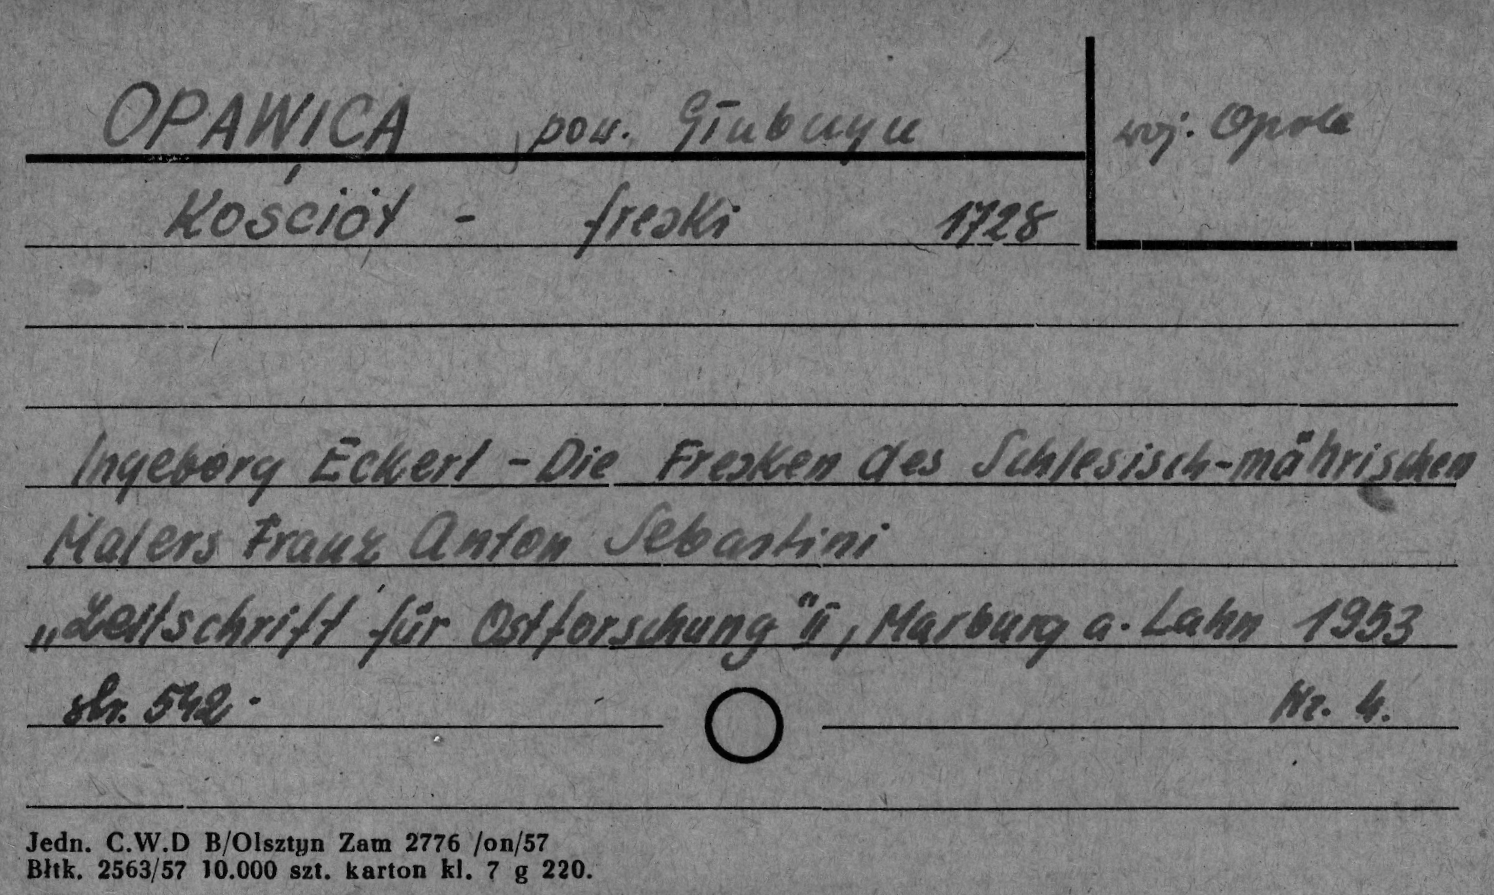 OPAWICA, pow. Głubczyce
woj. Opole
Kościół - freski 1728
Ingeborg Eckert - Die Fresken des Schlesisch-mährischen
Malers Franz Anton Sebastini
„Zeitschrift für Ostforschung" II, Marburg a. Lahn 1953
str. 542. Nr. 4.
Jedn. C.W.D B/Olsztyn Zam 2776 /on/57
Błtk. 2563/57 10.000 szt. karton kl. 7 g 220.